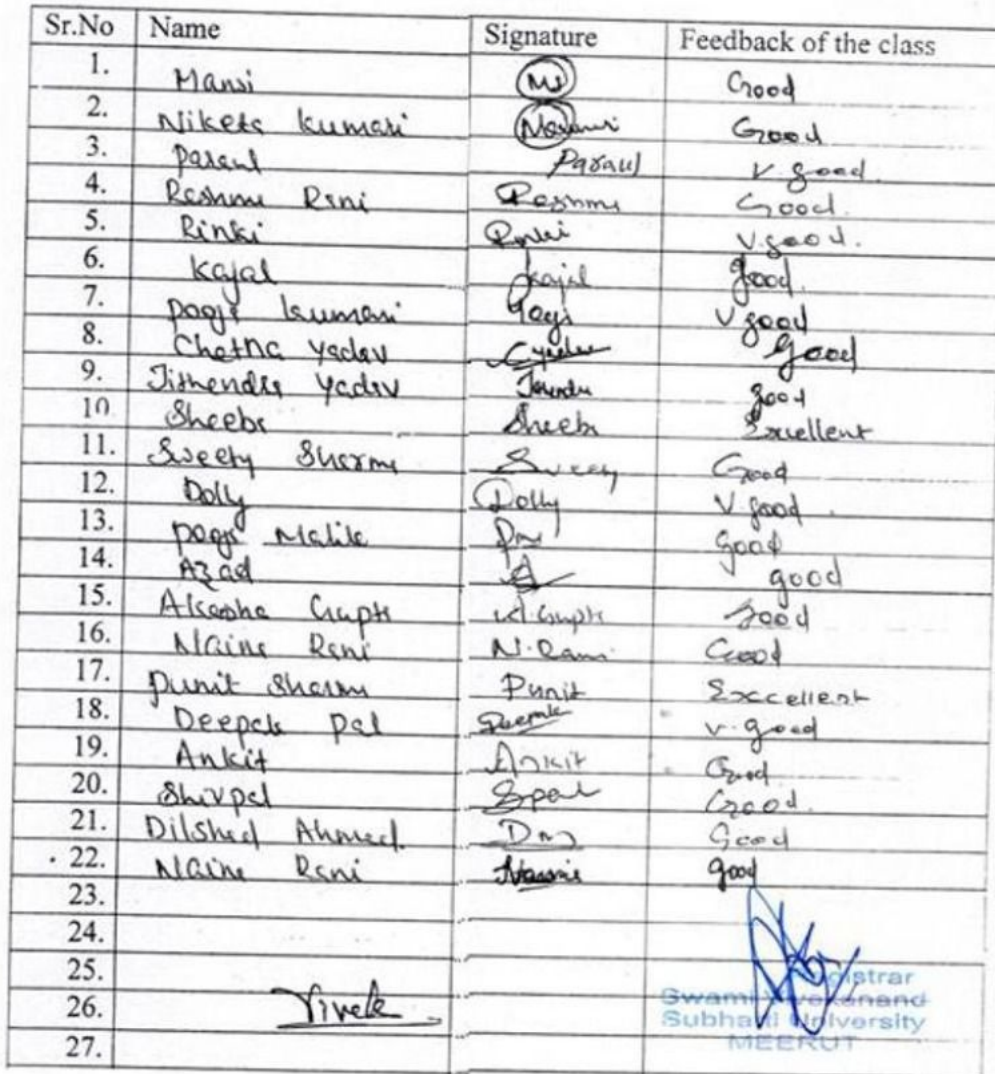 Sr.No Name Signature Feedback of the class
1. Mansi MS Good
2. Niketa Kumari Good
3. Paraul Paraul V. good.
4. Reshma Rani Reshma Good.
5. Rinki Rinki V. good.
6. Kajal Kajal good.
7. Pooja Kumari Pooja V good
8. Chetna Yadav CYadav Good
9. Jithendra Yadav good
10. Sheeba Sheeba Excellent
11. Sweety Sharma Sweety Good
12. Dolly Dolly V. good
13. Pooja Malik good
14. Azad good
15. Akasha Gupta A. Gupta good
16. Naina Rani N. Rani Good
17. Punit Sharma Punit Exccellent
18. Deepak Pal Deepak v. good
19. Ankit Ankit Good
20. Shivpal Spal Good.
21. Dilshad Ahmed. Good
22. Naina Rani good
23.
24.
25. Registrar
26. Vivek Swami Vivekanand
Subharti University
27. MEERUT